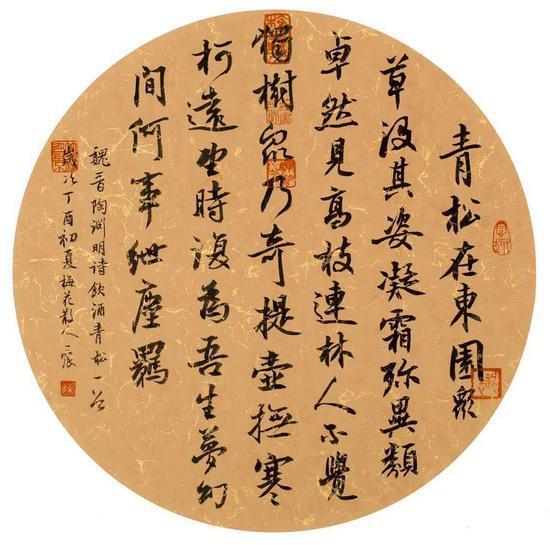 青松在東園眾
草没其姿凝霜殄異類
卓然見高枝連林人不覺
獨樹眾乃奇提壺撫寒
柯遠望時復為吾生夢幻
間何事紲塵羈
魏晉陶淵明詩飲酒青松一首
歲次丁酉初夏梅花散人震